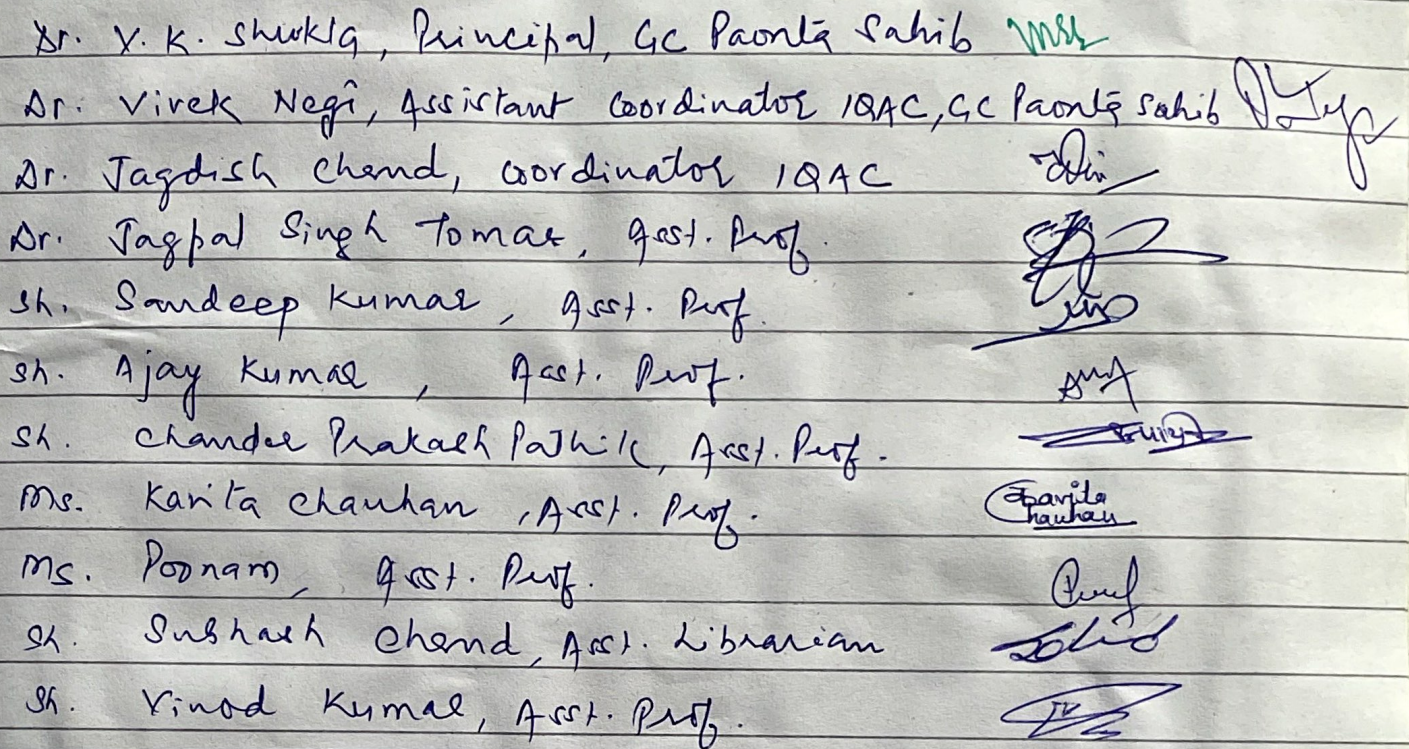 Dr. V. K. Shukla, Principal, GC Paonta Sahib
Dr. Vivek Negi, Assistant Coordinator IQAC, GC Paonta Sahib
Dr. Jagdish Chand, Coordinator IQAC
Dr. Jagpal Singh Tomar, Asst. Prof.
Sh. Sandeep Kumar, Asst. Prof.
Sh. Ajay Kumar, Asst. Prof.
Sh. Chander Prakash Pathik, Asst. Prof.
Ms. Kavita Chauhan, Asst. Prof. Kavita Chauhan
Ms. Poonam, Asst. Prof.
Sh. Subhash Chand, Asst. Librarian
Sh. Vinod Kumar, Asst. Prof.